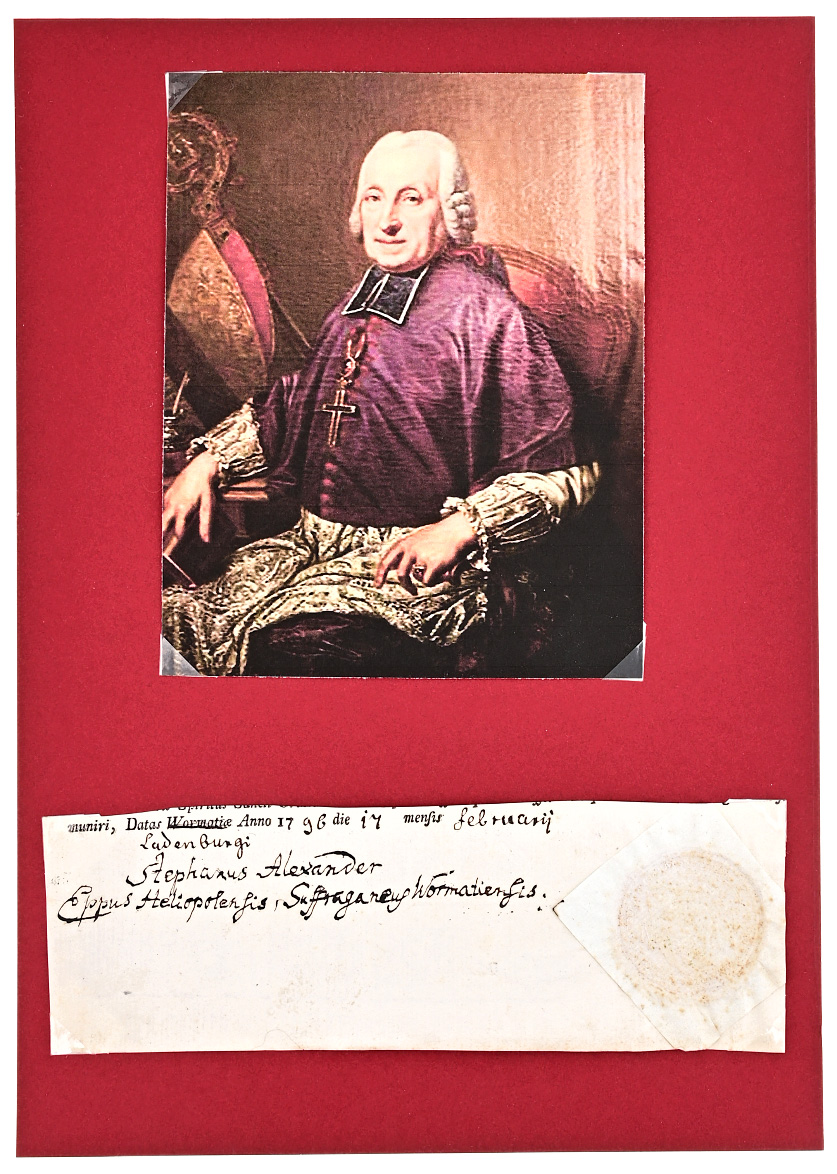 Spiritus Sancti
muniri, Datas Wormatiæ Anno 1796 die 17 mensis februarij
Ladenburgi
Stephanus Alexander
Eppus Heliopolensis, Suffraganeus Wormatiensis.